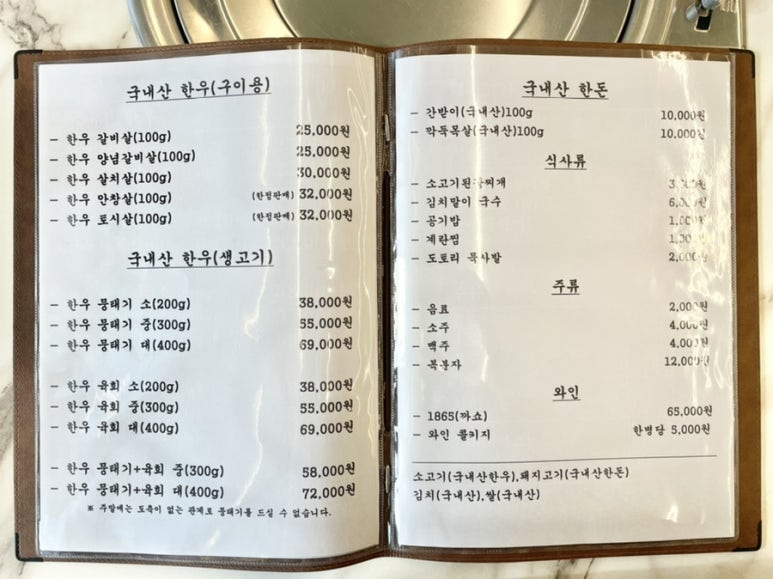 국내산 한우(구이용)
- 한우 갈비살(100g) 25,000원
- 한우 양념갈비살(100g) 25,000원
- 한우 살치살(100g) 30,000원
- 한우 안창살(100g) (한정판매) 32,000원
- 한우 토시살(100g) (한정판매) 32,000원
국내산 한우(생고기)
- 한우 뭉태기 소(200g) 38,000원
- 한우 뭉태기 중(300g) 55,000원
- 한우 뭉태기 대(400g) 69,000원
- 한우 육회 소(200g) 38,000원
- 한우 육회 중(300g) 55,000원
- 한우 육회 대(400g) 69,000원
- 한우 뭉태기+육회 중(300g) 58,000원
- 한우 뭉태기+육회 대(400g) 72,000원
※ 주말에는 도축이 없는 관계로 뭉태기를 드실 수 없습니다.
국내산 한돈
- 간받이(국내산)100g 10,000원
- 깍뚝목살(국내산)100g 10,000원
식사류
- 소고기된장찌개
- 김치말이 국수 6,000원
- 공기밥 1,000원
- 계란찜 1,000원
- 도토리 묵사발 2,000원
주류
- 음료 2,000원
- 소주 4,000원
- 맥주 4,000원
- 복분자 12,000원
와인
- 1865(까쇼) 65,000원
- 와인 콜키지 한병당 5,000원
소고기(국내산한우),돼지고기(국내산한돈)
김치(국내산),쌀(국내산)